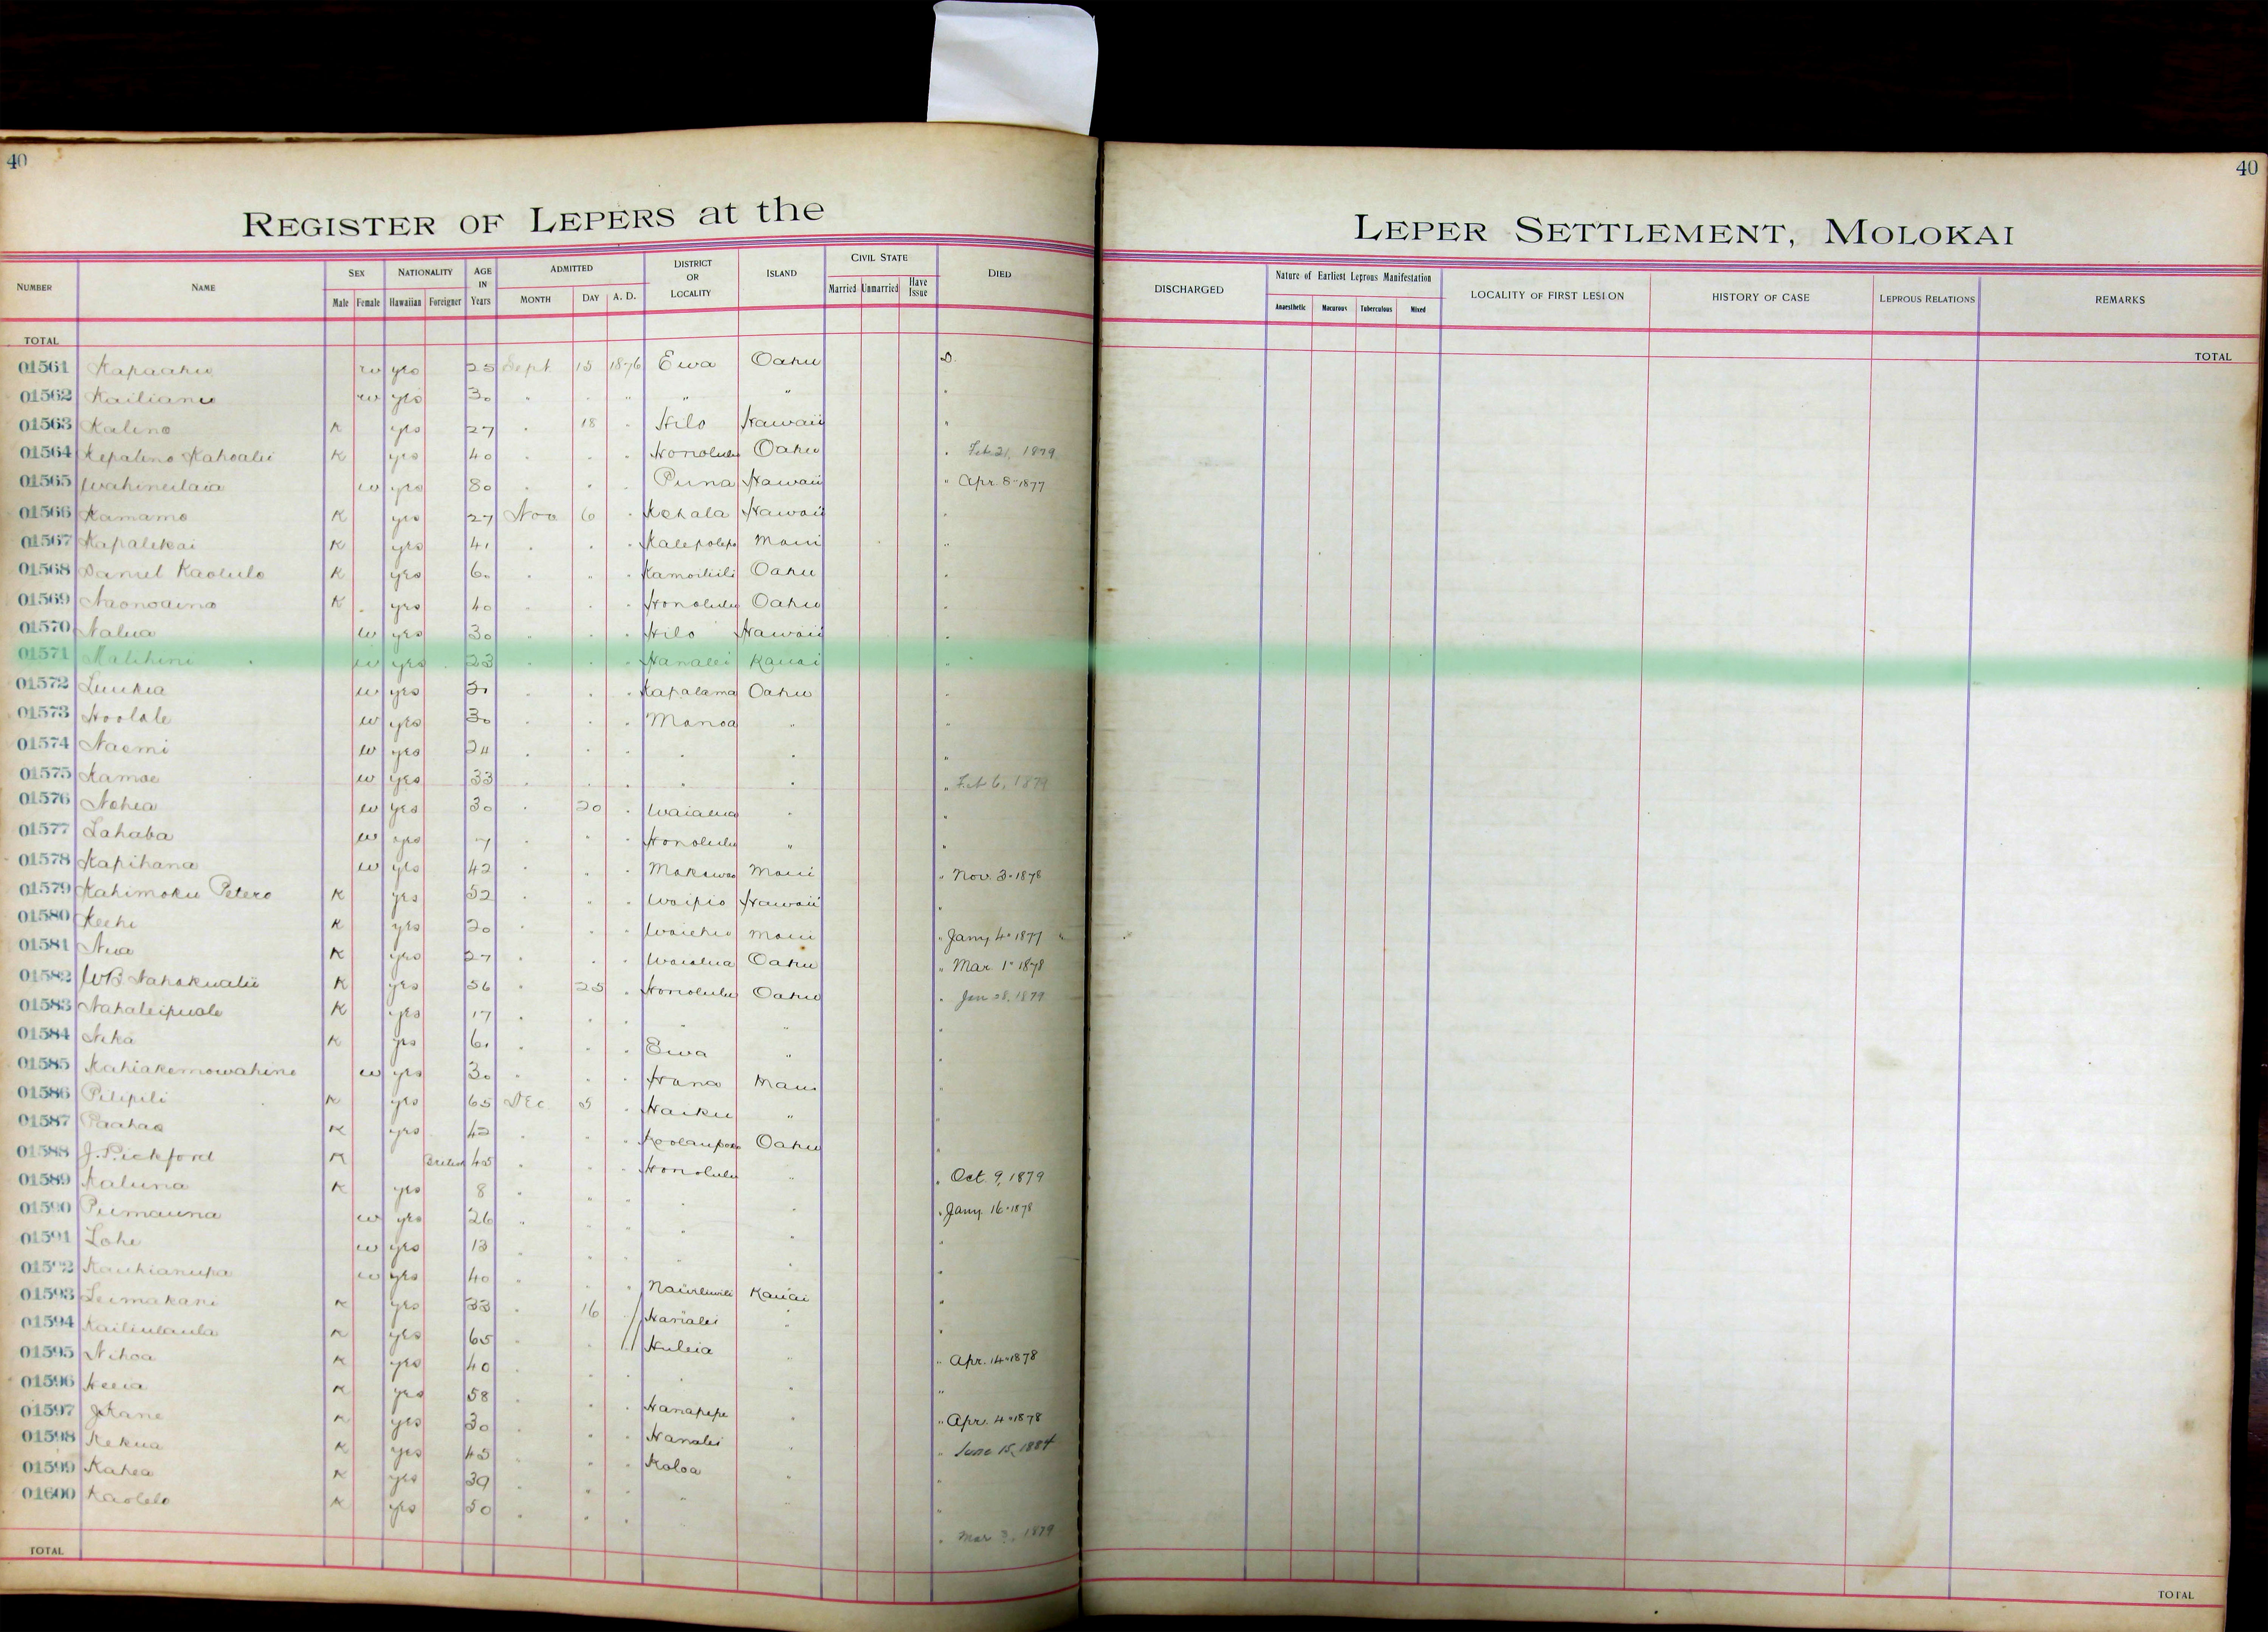 40
40
REGISTER OF LEPERS at the
LEPER SETTLEMENT, MOLOKAI
NUMBER NAME SEX Male Female NATIONALITY Hawaiian Foreigner AGE IN Years ADMITTED MONTH DAY A. D. DISTRICT OR LOCALITY ISLAND CIVIL STATE Married Unmarried Have Issue DIED
DISCHARGED Nature of Earliest Leprous Manifestation Anaesthetic Macurous Tuberculous Mixed LOCALITY OF FIRST LESION HISTORY OF CASE LEPROUS RELATIONS REMARKS
TOTAL
TOTAL
01561 Kapaahu w yes 25 Sept 15 1876 Ewa Oahu D.
01562 Kailianu w yes 30 " " " " " "
01563 Kalino K yes 27 " 18 " Hilo Hawaii "
01564 Kepalino Kahoalii K yes 40 " " " Honolulu Oahu " Feb 21, 1879
01565 Wahineilaia w yes 80 " " " Puna Hawaii " Apr. 8-1877
01566 Kamamo K yes 27 Nov 6 " Kohala Hawaii "
01567 Kapalikai K yes 41 " " " Kalepolepo Maui "
01568 Daniel Kaolulo K yes 60 " " " Kamoiliili Oahu "
01569 Naonoaina K yes 40 " " " Honolulu Oahu "
01570 Nalua w yes 30 " " " Hilo Hawaii "
01571 Malihini w yes 23 " " " Hanalei Kauai "
01572 Luukia w yes 31 " " " Kapalama Oahu "
01573 Hoolale w yes 30 " " " Manoa " "
01574 Naomi w yes 24 " " " " " "
01575 Kamae w yes 33 " " " " " " Feb 6, 1879
01576 Nohea w yes 30 " 20 " Waialua " "
01577 Lahaba w yes 7 " " " Honolulu " "
01578 Kapihana w yes 42 " " " Makawao Maui " Nov. 3-1878
01579 Kahimoku Petero K yes 52 " " " Waipio Hawaii "
01580 Keehi K yes 20 " " " Waiehu Maui " Jany 4-1877 "
01581 Nua K yes 27 " " " Waialua Oahu " Mar. 1-1878
01582 WB Nahokualii K yes 56 " 25 " Honolulu Oahu " Jan 28, 1879
01583 Nahaleipuale K yes 17 " " " " " "
01584 Nika K yes 61 " " " Ewa " "
01585 Kahiakemowahine w yes 30 " " " Hana Maui "
01586 Pilipili K yes 65 Dec 5 " Haiku " "
01587 Paahao K yes 42 " " " Koolaupoko Oahu "
01588 J. Pickford K British 45 " " " Honolulu " " Oct. 9, 1879
01589 Kaluna K yes 8 " " " " " " Jany 16-1878
01590 Puimauna w yes 26 " " " " " "
01591 Lohe w yes 13 " " " " " "
01592 Kauhianupa w yes 40 " " " Nawiliwili Kauai "
01593 Leimakani K yes 33 " 16 " Hanalei " "
01594 Kailiulaula K yes 65 " " " Huleia " " Apr. 14-1878
01595 Nihoa K yes 40 " " " " " "
01596 Heeia K yes 58 " " " Hanapepe " " Apr. 4-1878
01597 J Kane K yes 30 " " " Hanalei " " June 15, 1884
01598 Kekua K yes 45 " " " Koloa " "
01599 Kahea K yes 39 " " " " " "
01600 Kaolelo K yes 50 " " " " Mar 3, 1879
TOTAL
TOTAL